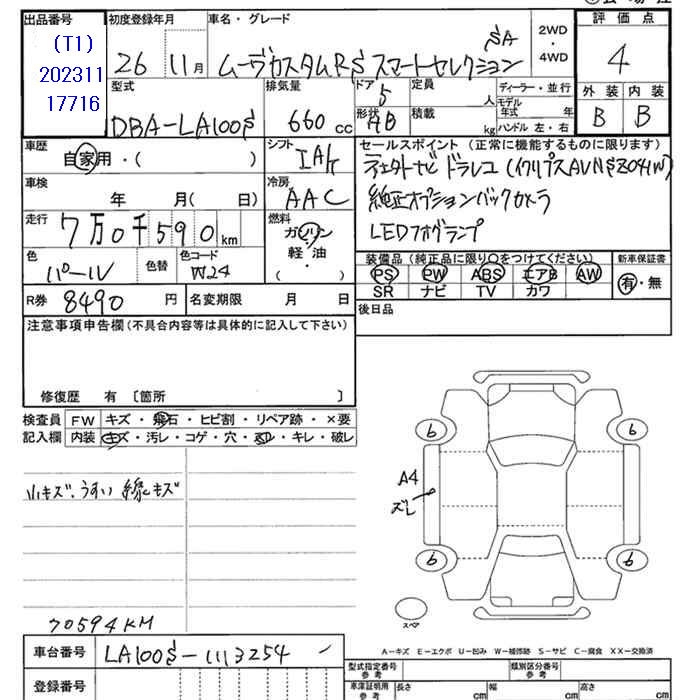 出品番号 初度登録年月 車名・グレード 2WD ・ 4WD 評価点
(T1) 202311 17716
26 11月 ムーヴカスタムRS スマートセレクション SA 4
型式 排気量 ドア 5 定員 人 ディーラー・並行 外装 内装
DBA-LA100S 660 cc 形状 HB 積載 kg モデル年式 年 ハンドル 左・右 B B
車歴 自家用・( ) シフト IA/T セールスポイント (正常に機能するものに限ります)
ディーラーナビ ドラレコ (イクリプスAVNSZ04iW)
車検 年 月 ( 日) 冷房 AAC 純正オプションバックカメラ
走行 7万0千590km 燃料 ガソリン・軽・油・( ) LEDフォグランプ
色 パール 色替 色コード W24 装備品 (純正品に限り○をつけてください) 新車保証書
PS PW ABS エアB AW 有・無
SR ナビ TV カワ
R券 8490 円 名変期限 月 日 後日品
注意事項申告欄(不具合内容等は具体的に記入して下さい)
修復歴 有 〔箇所 〕
検査員 FW キズ・飛石・ヒビ割・リペア跡・×要
記入欄 内装 キズ・汚レ・コゲ・穴・ ・キレ・破レ
小キズ、うすい線キズ
6 6
A4
ズレ
6 6
スペア
70594KM
A-キズ E-エクボ U-凹み W-補修跡 S-サビ C-腐食 XX-交換済
車台番号 LA100S-1113254
型式指定番号 参考 類別区分番号 参考
登録番号 車庫証明用 参考 長さ cm 幅 cm 高さ cm